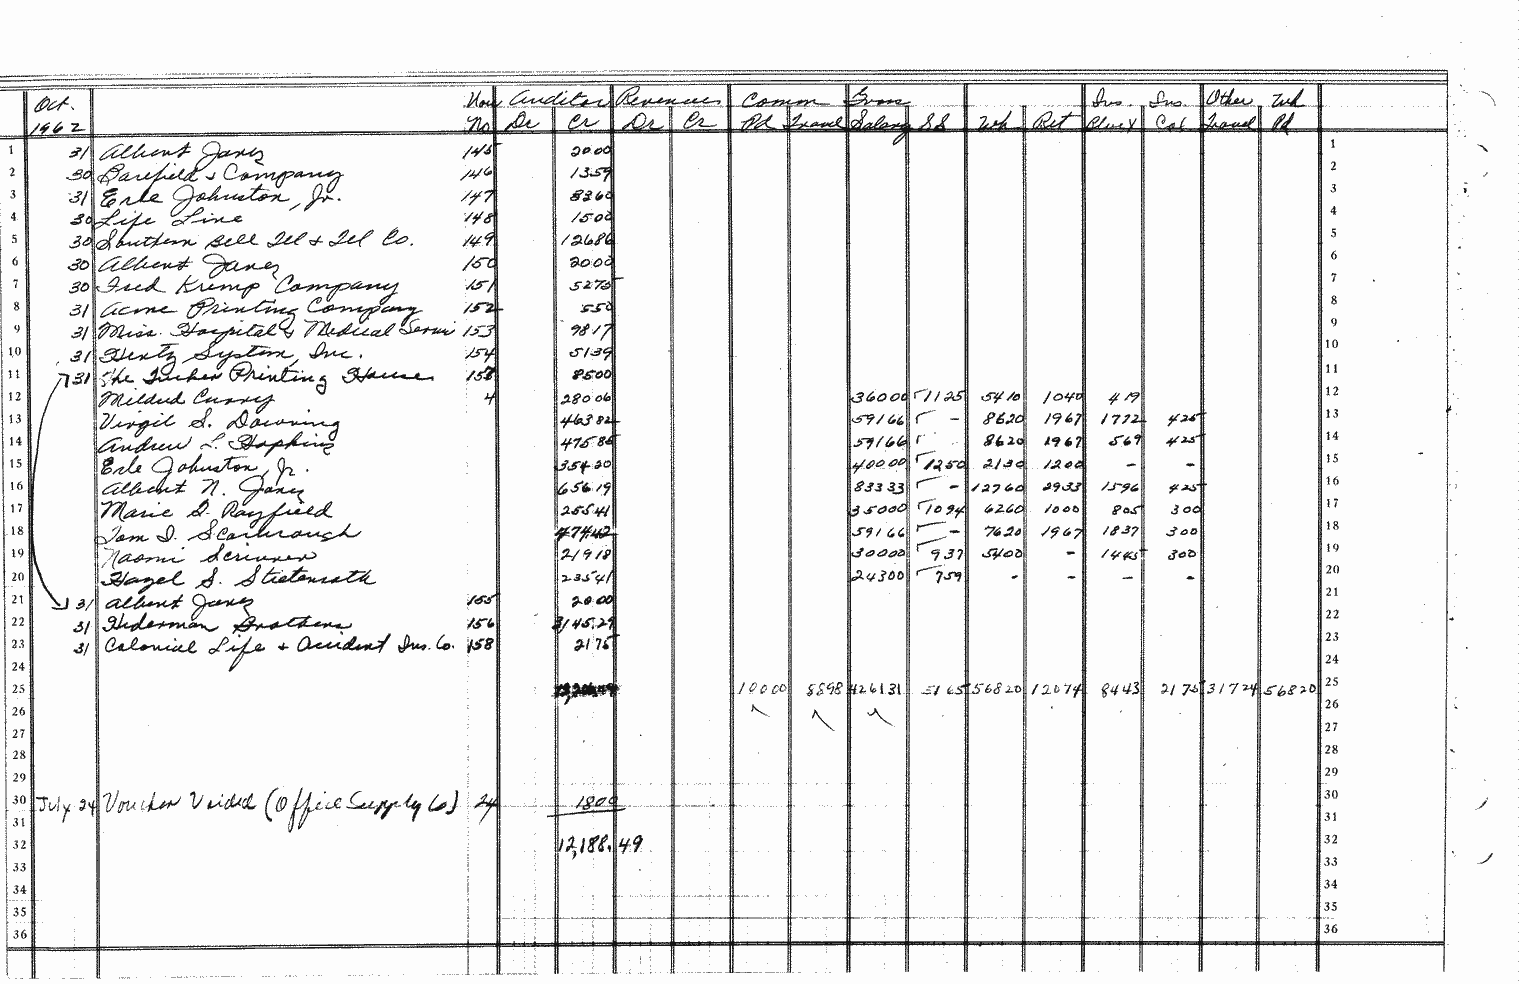 Oct. Vou Auditor Revenues Comm Gross Ins. Ins. Other Wh
1962 No. Dr Cr Dr Cr Pd Travel Salary SS Wh Ret Blue X Col Travel Pd
1 31 Albert Jones 145 2000 1
2 30 Barefield & Company 146 1359 2
3 31 Erle Johnston, Jr. 147 8360 3
4 30 Life Line 148 1500 4
5 30 Southern Bell Tel & Tel Co. 149 12686 5
6 30 Albert Jones 150 2000 6
7 30 Fred Kremp Company 151 5275 7
8 31 Acme Printing Company 152 550 8
9 31 Miss. Hospital & Medical Servi 153 9817 9
10 31 Hertz System, Inc. 154 5139 10
11 31 The Tucker Printing House 157 8500 11
12 Mildred Curry 4 28006 36000 1125 5410 1040 419 12
13 Virgil S. Downing 46382 59166 - 8620 1967 1772 425 13
14 Andrew L. Hopkins 47585 59166 8620 1967 569 425 14
15 Erle Johnston, Jr. 35420 40000 1250 2130 1200 - - 15
16 Albert N. Jones 65619 83333 - 12760 2933 1596 425 16
17 Marie G. Rayfield 25541 35000 1094 6260 1000 805 300 17
18 Tom I. Scarbrough 47442 59166 - 7620 1967 1837 300 18
19 Naomi Scrivner 21918 30000 937 5400 - 1445 300 19
20 Hazel S. Stietenroth 23541 24300 759 - - - - 20
21 31 Albert Jones 155 2000 21
22 31 Hederman Brothers 156 3,145.29 22
23 31 Colonial Life & Accident Ins. Co. 158 2175 23
24 24
25 10000 8898 426131 5165 56820 12074 8443 2175 31724 56820 25
26 26
27 27
28 28
29 29
30 July 24 Voucher Voided (Office Supply Co) 24 1800 30
31 31
32 12,188.49 32
33 33
34 34
35 35
36 36